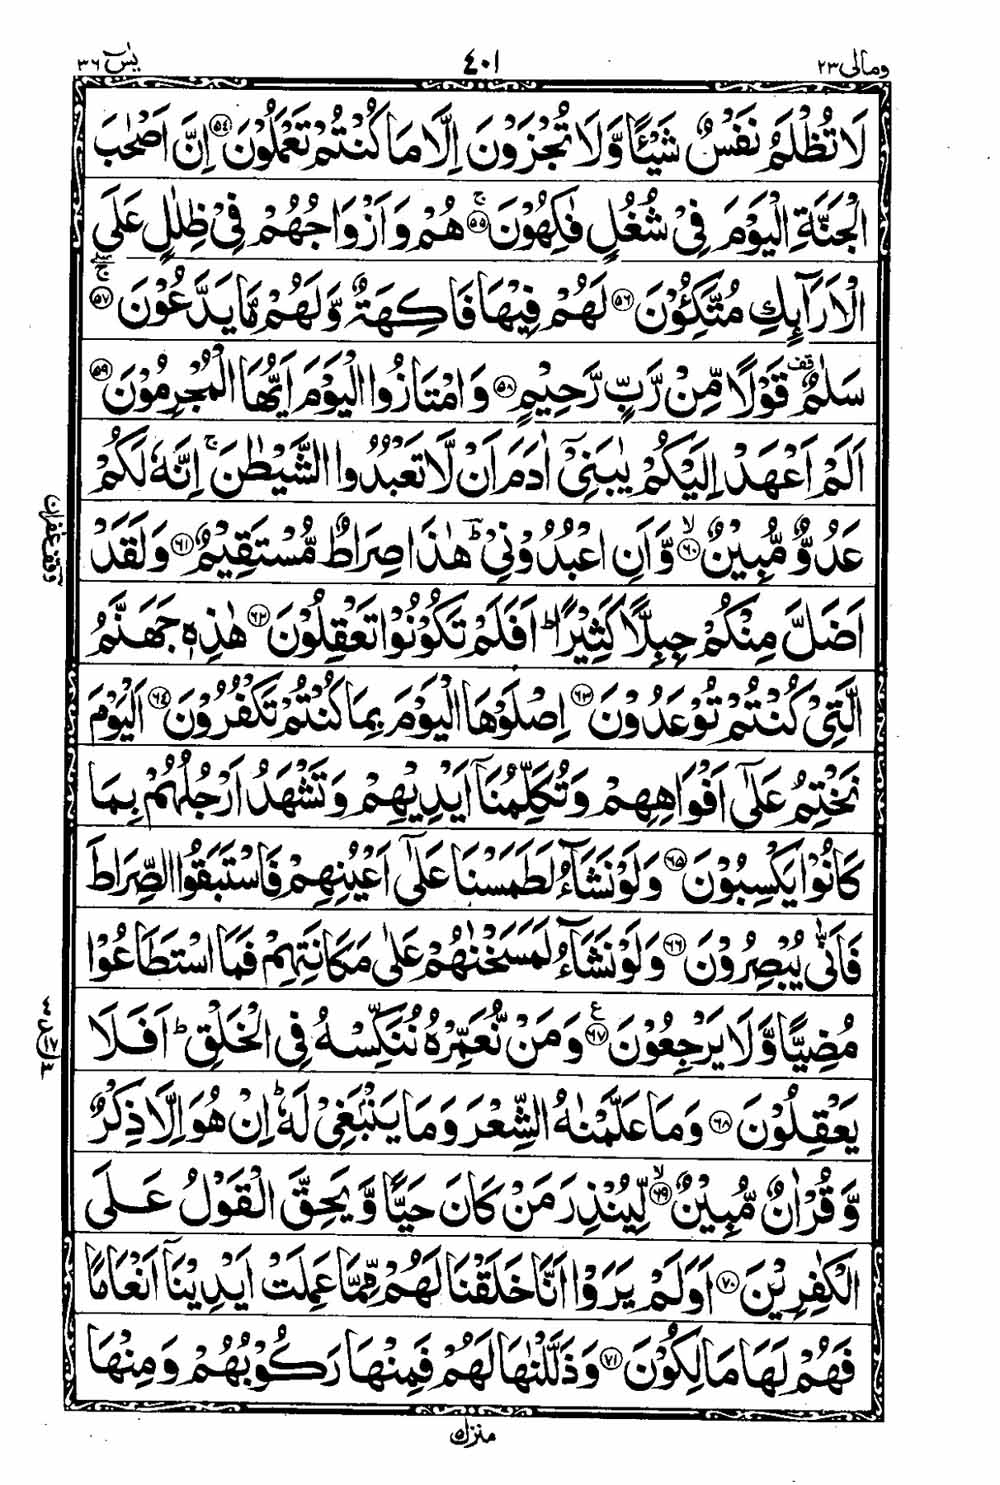 ومالی ٢٣
٤٠١
يٰسٓ ٣٦
لَا تُظْلَمُ نَفْسٌ شَيْـًٔا وَّلَا تُجْزَوْنَ اِلَّا مَا كُنْتُمْ تَعْمَلُوْنَ ۝٥٤ اِنَّ اَصْحٰبَ
الْجَنَّةِ الْيَوْمَ فِيْ شُغُلٍ فٰكِهُوْنَ ۚ۝٥٥ هُمْ وَاَزْوَاجُهُمْ فِيْ ظِلٰلٍ عَلَى
الْاَرَآىِٕكِ مُتَّكِـُٔوْنَ ۝٥٦ لَهُمْ فِيْهَا فَاكِهَةٌ وَّلَهُمْ مَّا يَدَّعُوْنَ ۝٥٧
سَلٰمٌ ۣ قَوْلًا مِّنْ رَّبٍّ رَّحِيْمٍ ۝٥٨ وَامْتَازُوا الْيَوْمَ اَيُّهَا الْمُجْرِمُوْنَ ۝٥٩
اَلَمْ اَعْهَدْ اِلَيْكُمْ يٰبَنِيْٓ اٰدَمَ اَنْ لَّا تَعْبُدُوا الشَّيْطٰنَ ۚ اِنَّهٗ لَكُمْ
عَدُوٌّ مُّبِيْنٌ ۙ۝٦٠ وَّاَنِ اعْبُدُوْنِيْ ؔؕ هٰذَا صِرَاطٌ مُّسْتَقِيْمٌ ۝٦١ وَلَقَدْ
اَضَلَّ مِنْكُمْ جِبِلًّا كَثِيْرًا ؕ اَفَلَمْ تَكُوْنُوْا تَعْقِلُوْنَ ۝٦٢ هٰذِهٖ جَهَنَّمُ
الَّتِيْ كُنْتُمْ تُوْعَدُوْنَ ۝٦٣ اِصْلَوْهَا الْيَوْمَ بِمَا كُنْتُمْ تَكْفُرُوْنَ ۝٦٤ اَلْيَوْمَ
نَخْتِمُ عَلٰٓى اَفْوَاهِهِمْ وَتُكَلِّمُنَآ اَيْدِيْهِمْ وَتَشْهَدُ اَرْجُلُهُمْ بِمَا
كَانُوْا يَكْسِبُوْنَ ۝٦٥ وَلَوْ نَشَآءُ لَطَمَسْنَا عَلٰٓى اَعْيُنِهِمْ فَاسْتَبَقُوا الصِّرَاطَ
فَاَنّٰى يُبْصِرُوْنَ ۝٦٦ وَلَوْ نَشَآءُ لَمَسَخْنٰهُمْ عَلٰى مَكَانَتِهِمْ فَمَا اسْتَطَاعُوْا
مُضِيًّا وَّلَا يَرْجِعُوْنَ ۝٦٧ وَمَنْ نُّعَمِّرْهُ نُنَكِّسْهُ فِي الْخَلْقِ ؕ اَفَلَا
يَعْقِلُوْنَ ۝٦٨ وَمَا عَلَّمْنٰهُ الشِّعْرَ وَمَا يَنْۢبَغِيْ لَهٗ ؕ اِنْ هُوَ اِلَّا ذِكْرٌ
وَّقُرْاٰنٌ مُّبِيْنٌ ۙ۝٦٩ لِّيُنْذِرَ مَنْ كَانَ حَيًّا وَّيَحِقَّ الْقَوْلُ عَلَى
الْكٰفِرِيْنَ ۝٧٠ اَوَلَمْ يَرَوْا اَنَّا خَلَقْنَا لَهُمْ مِّمَّا عَمِلَتْ اَيْدِيْنَآ اَنْعَامًا
فَهُمْ لَهَا مَالِكُوْنَ ۝٧١ وَذَلَّلْنٰهَا لَهُمْ فَمِنْهَا رَكُوْبُهُمْ وَمِنْهَا
منزل ٥
وقف غفران